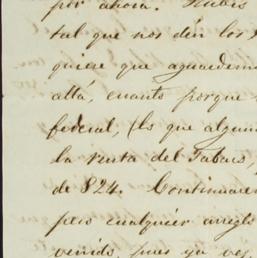 por ahora.
tal que nos den los
quiere que aguardemo
allá, cuanto porque
federal, (los que algun
la renta del Tabaco,
de 824. Continuare
pero cualquier arregl
venido, pues ya ve